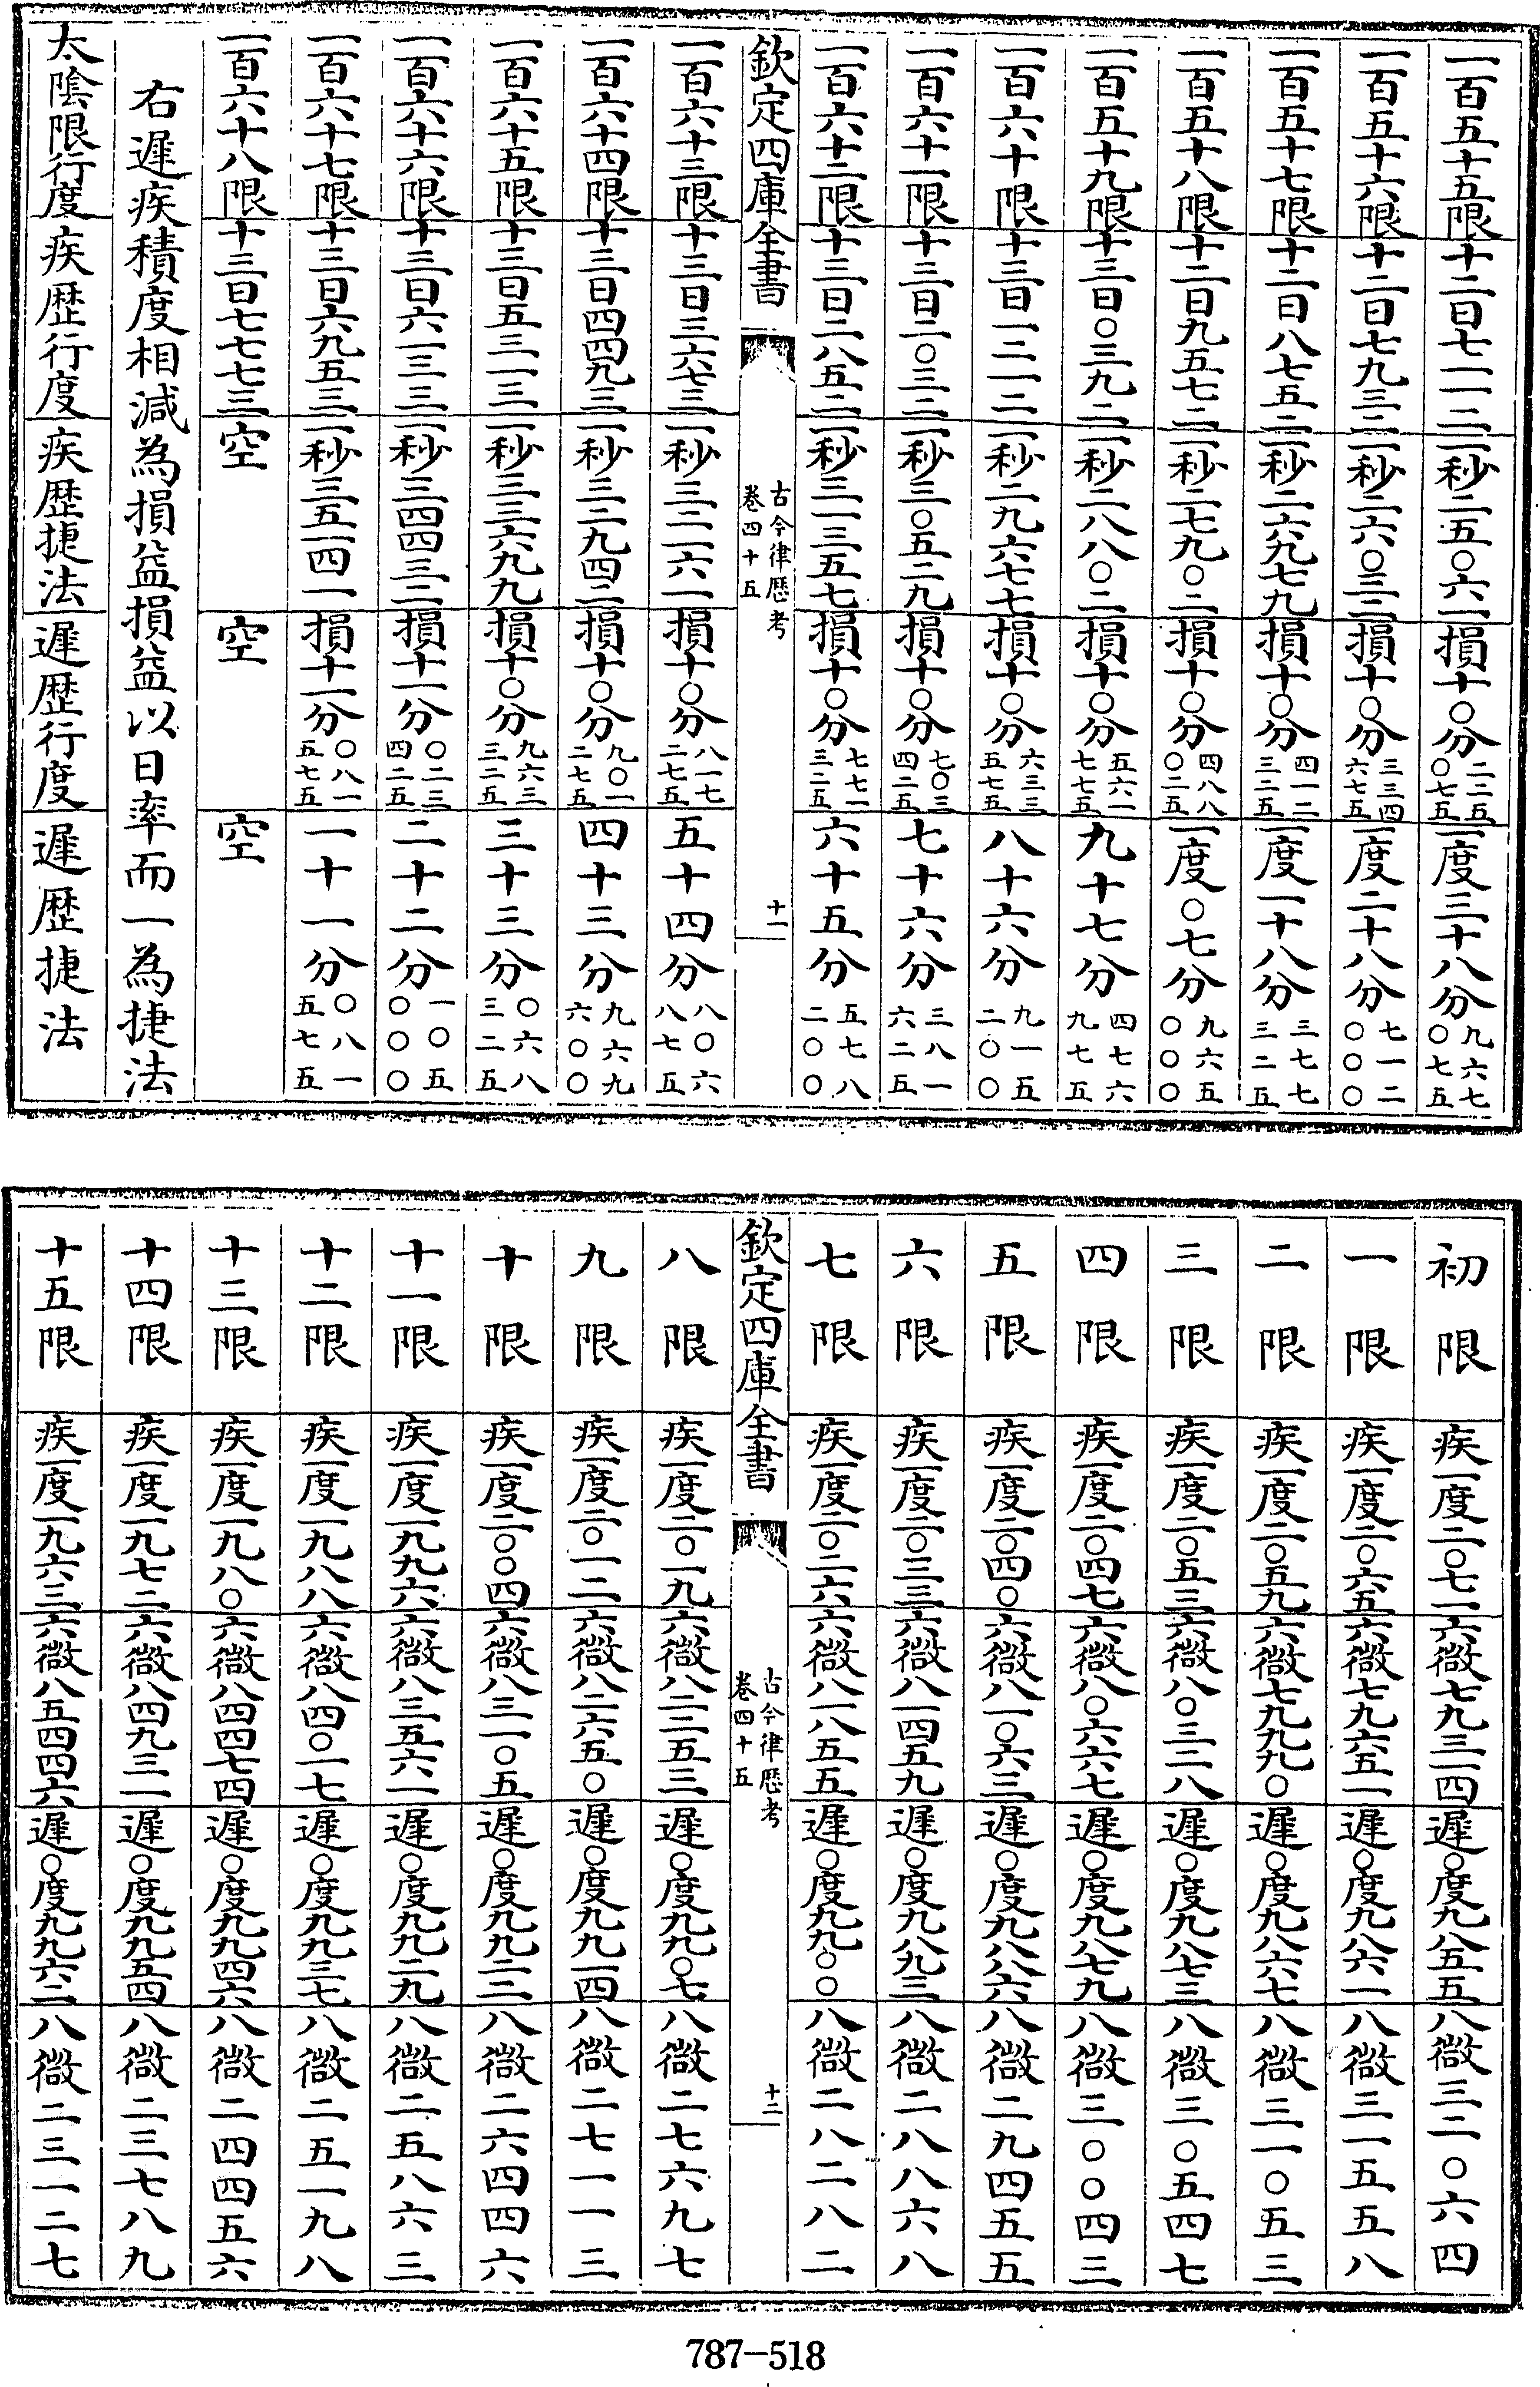 一百五十五限 十二日七一一二 一秒二五〇六一 損十〇分二二五〇七五 一度三十八分九六七〇七五
一百五十六限 十二日七九三二 一秒二六〇三二 損十〇分三三四六七五 一度二十八分七一二〇〇〇
一百五十七限 十二日八七五二 一秒二六九七九 損十〇分四一二三二五 一度一十八分三七七三二五
一百五十八限 十二日九五七二 一秒二七九〇二 損十〇分四八八〇二五 一度〇七分九六五〇〇〇
一百五十九限 十三日〇三九二 一秒二八八〇二 損十〇分五六一七七五 九十七分四七六九七五
一百六十限 十三日一二一二 一秒二九六七七 損十〇分六三三五七五 八十六分九一五二〇〇
一百六十一限 十三日二〇三二 一秒三〇五二九 損十〇分七〇三四二五 七十六分三八一六二五
一百六十二限 十三日二八五二 一秒三一三五七 損十〇分七七一三二五 六十五分五七八二〇〇
欽定四庫全書 古今律歷考 卷四十五 十一
一百六十三限 十三日三六七三 一秒三二一六一 損十〇分八一七二七五 五十四分八〇六八七五
一百六十四限 十三日四四九三 一秒三二九四二 損十〇分九〇一二七五 四十三分九六九六〇〇
一百六十五限 十三日五三一三 一秒三三六九九 損十〇分九六三三二五 三十三分〇六八三二五
一百六十六限 十三日六一三三 一秒三四四三二 損十一分〇二三四二五 二十二分一〇五〇〇〇
一百六十七限 十三日六九五三 一秒三五一四一 損十一分〇八一五七五 一十一分〇八一五七五
一百六十八限 十三日七七七三 空 空 空
右遲疾積度相減為損益損益以日率而一為捷法
太陰限行度 疾歷行度 疾歷捷法 遲歷行度 遲歷捷法
初限 疾一度二〇七一 六微七九三一四 遲〇度九八五五 八微三二〇六四
一限 疾一度二〇六五 六微七九六五一 遲〇度九八六一 八微三一五五八
二限 疾一度二〇五九 六微七九九九〇 遲〇度九八六七 八微三一〇五三
三限 疾一度二〇五三 六微八〇三二八 遲〇度九八七三 八微三〇五四七
四限 疾一度二〇四七 六微八〇六六七 遲〇度九八七九 八微三〇〇四三
五限 疾一度二〇四〇 六微八一〇六三 遲〇度九八八六 八微二九四五五
六限 疾一度二〇三三 六微八一四五九 遲〇度九八九三 八微二八八六八
七限 疾一度二〇二六 六微八一八五五 遲〇度九九〇〇 八微二八二八二
欽定四庫全書 古今律歷考 卷四十五 十二
八限 疾一度二〇一九 六微八二二五三 遲〇度九九〇七 八微二七六九七
九限 疾一度二〇一二 六微八二六五〇 遲〇度九九一四 八微二七一一三
十限 疾一度二〇〇四 六微八三一〇五 遲〇度九九二二 八微二六四四六
十一限 疾一度一九九六 六微八三五六一 遲〇度九九二九 八微二五八六三
十二限 疾一度一九八八 六微八四〇一七 遲〇度九九三七 八微二五一九八
十三限 疾一度一九八〇 六微八四四七四 遲〇度九九四六 八微二四四五六
十四限 疾一度一九七二 六微八四九三一 遲〇度九九五四 八微二三七八九
十五限 疾一度一九六三 六微八五四四六 遲〇度九九六二 八微二三一二七
787-518